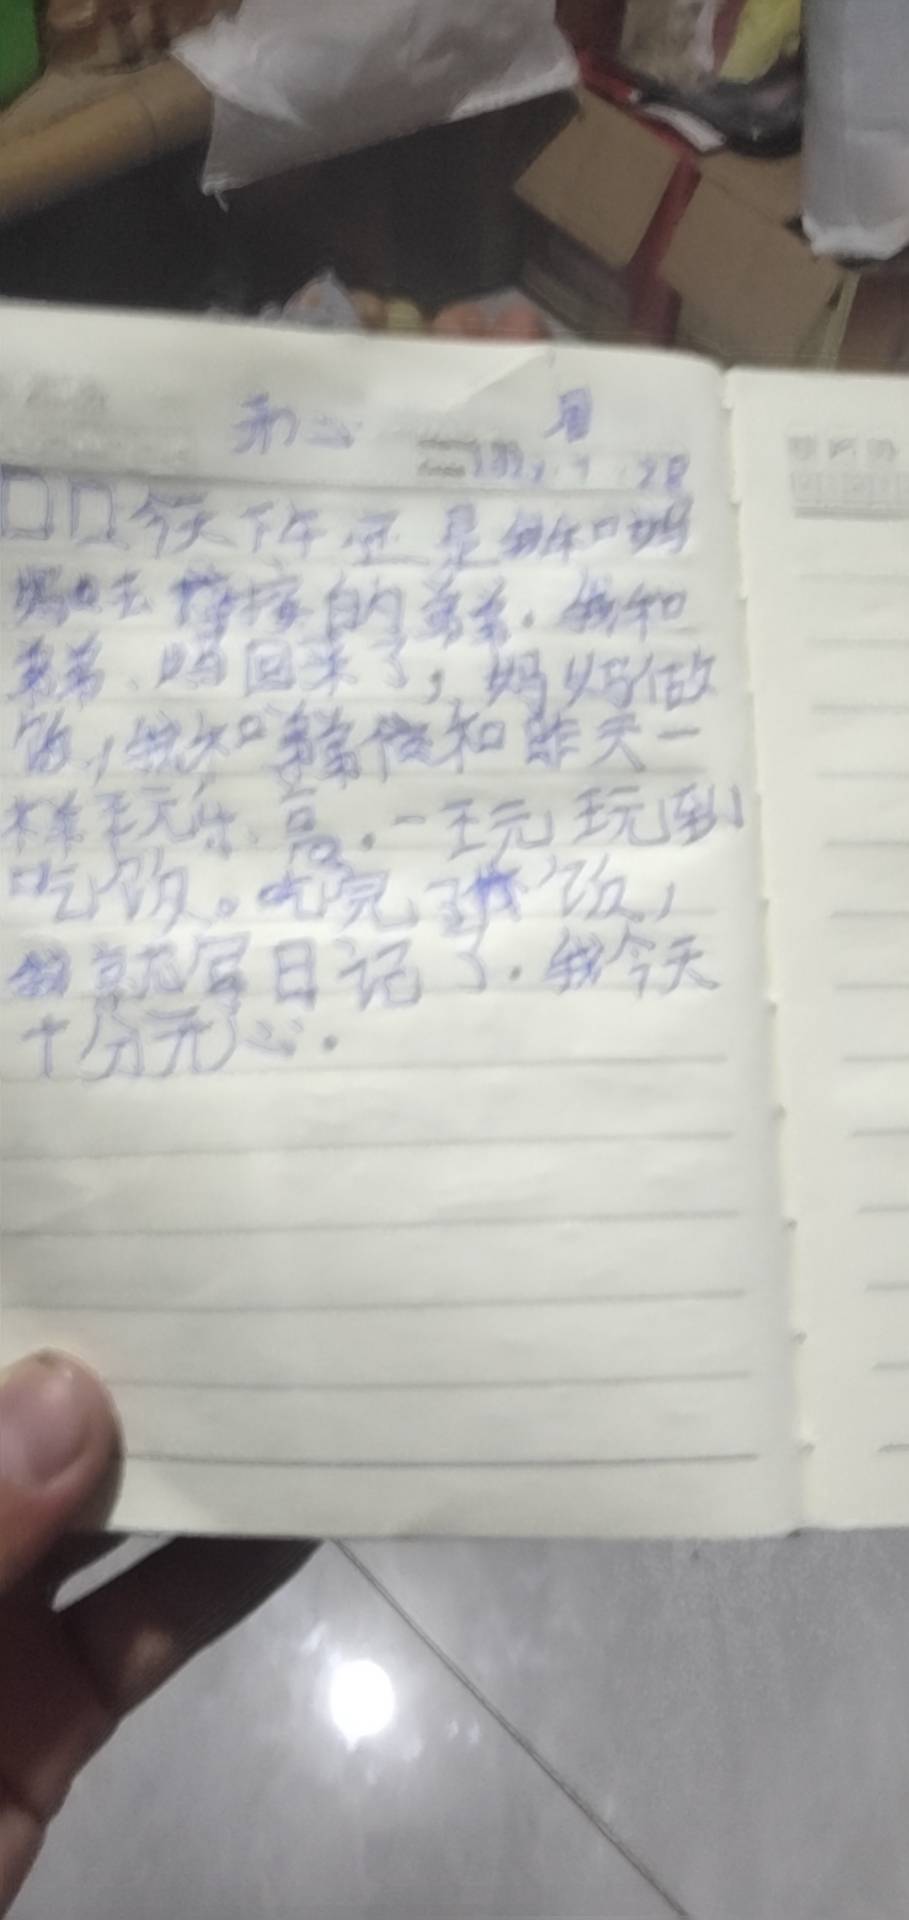 开心
今天下午还是我和妈
妈去接的弟弟.我和
弟弟回来了,妈妈做
饭,我和弟弟和昨天一
样玩乐高.一玩玩到
吃饭。吃完了饭,
我就写日记了.我今天
十分开心.